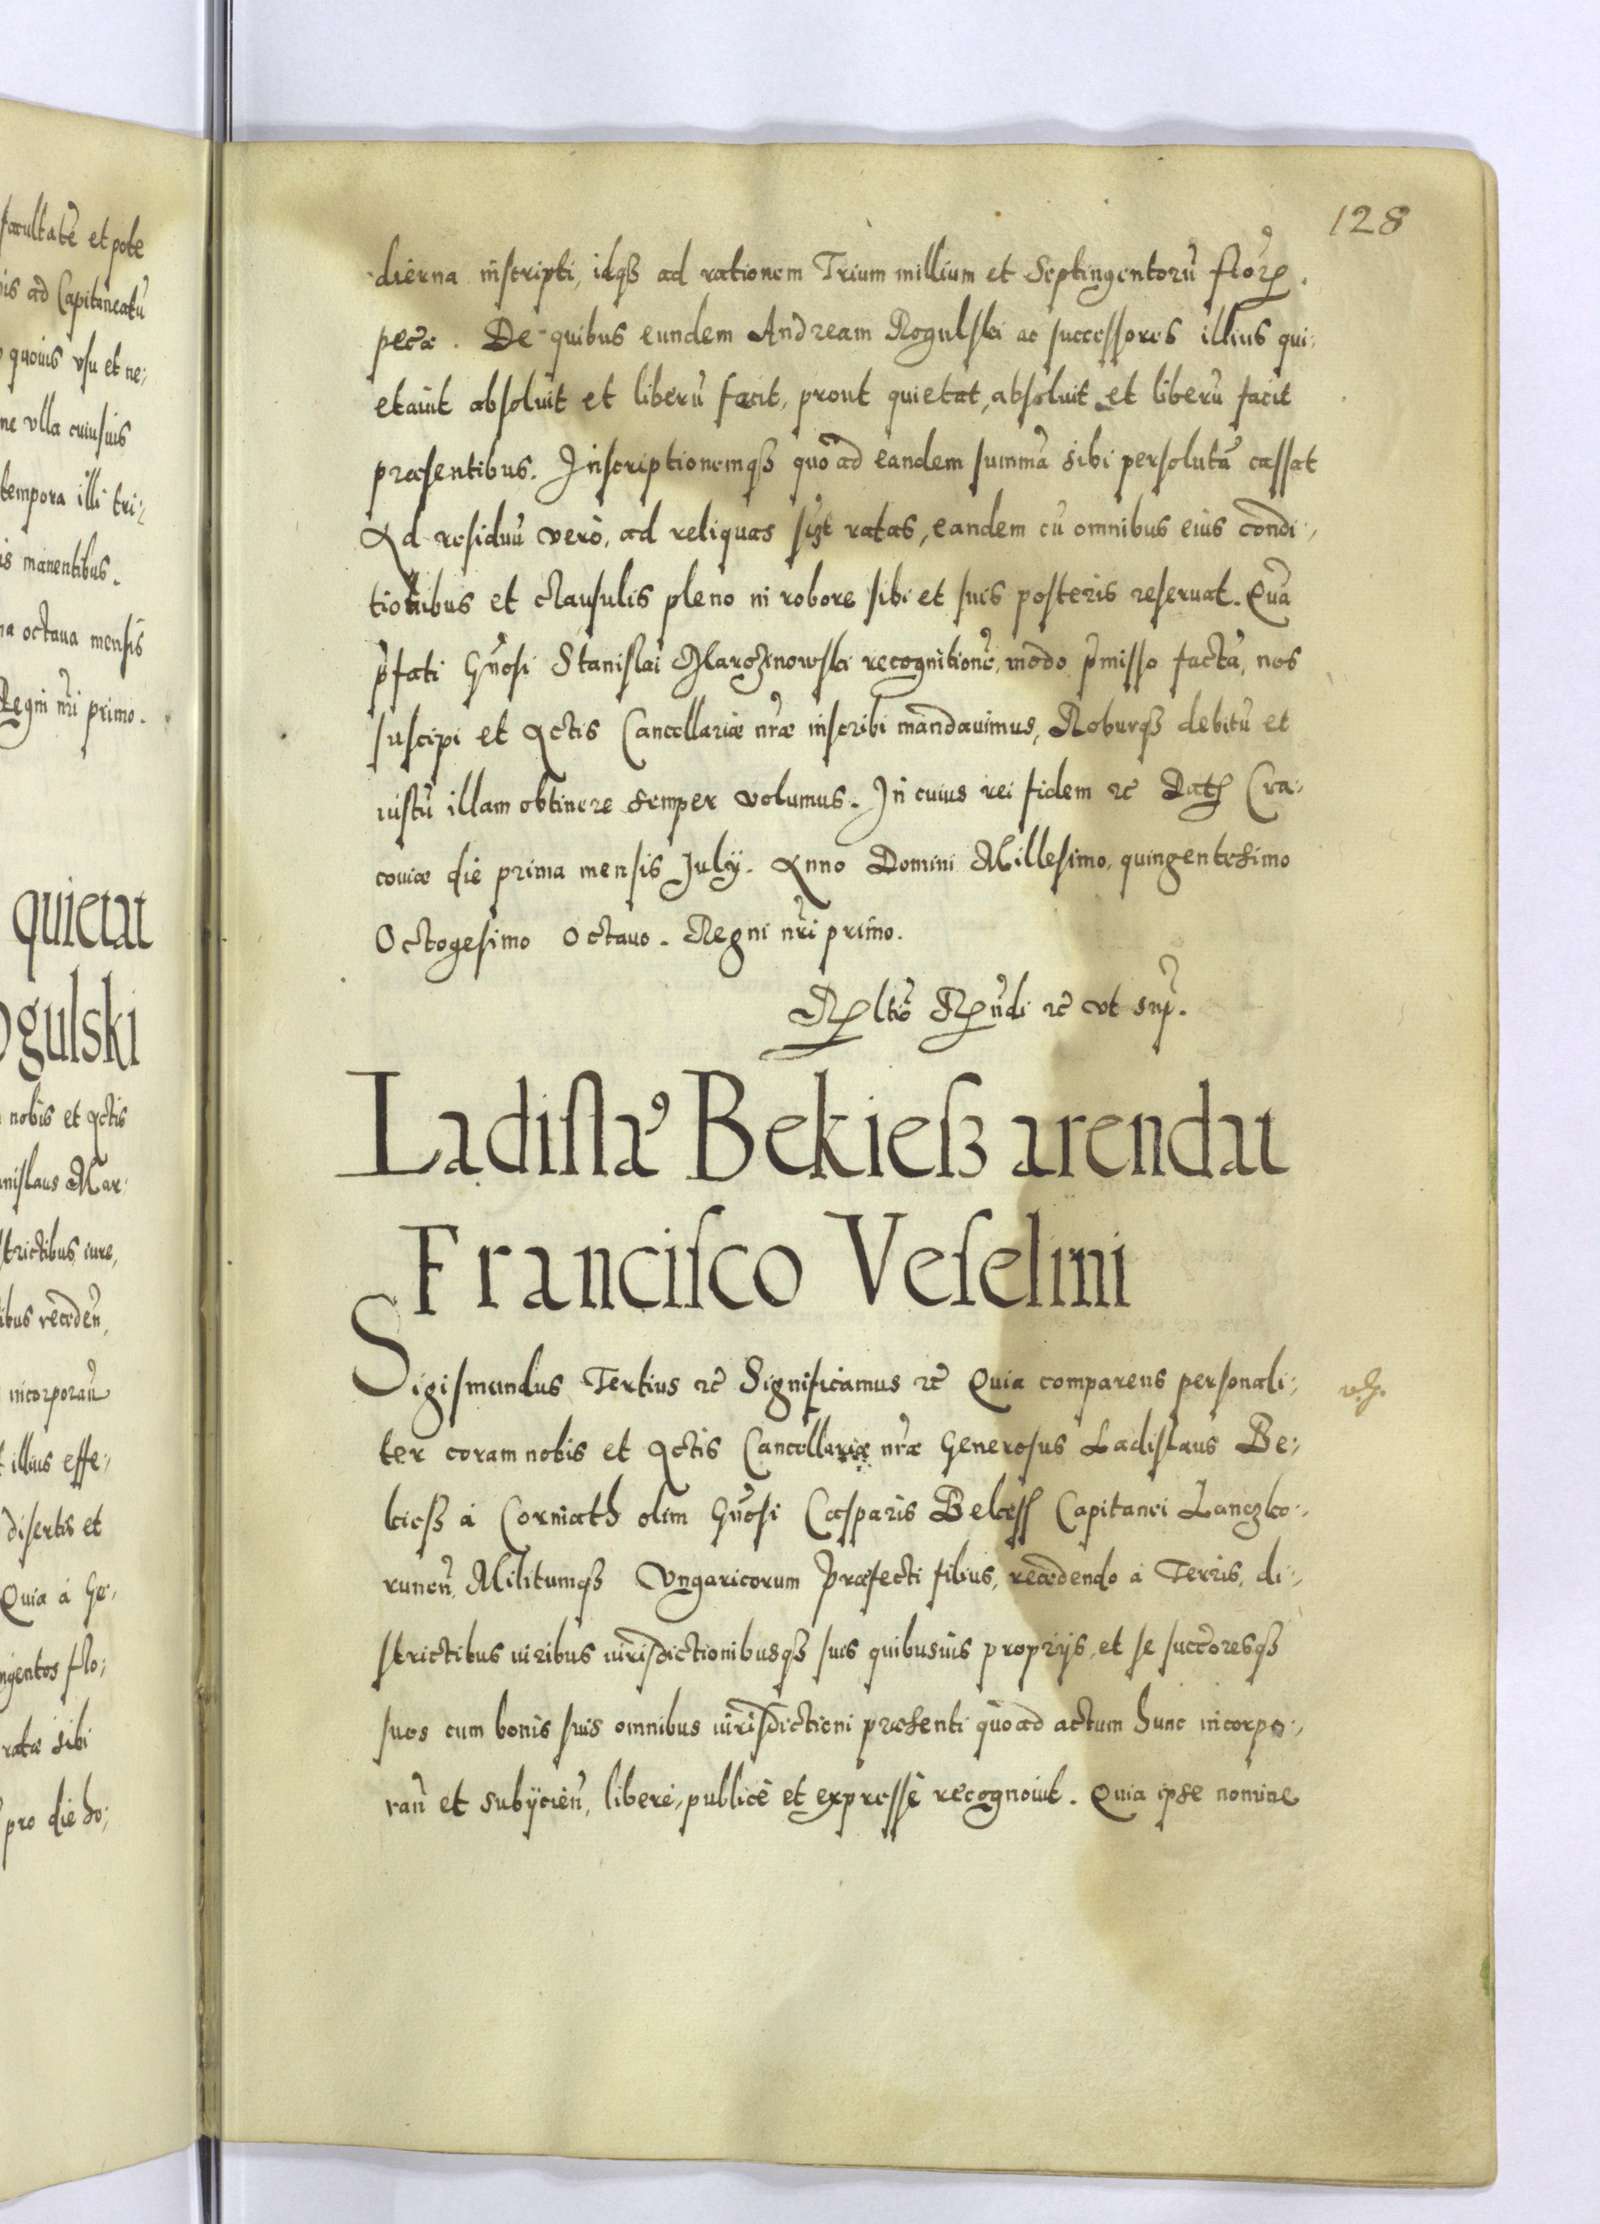 facultatē et pote
is ad Capitaneatū
quouis vsu et ne:
ne vlla cuiusuis
tempora illi tri:
is manentibus.
na octaua mensis
Regni nr̃i primo.
quietat
ogulski
nobis et Actis
anislaus Mar:
strictibus iure,
ibus recēden,
incorporañ
illius effe:
disertis et
Quia à Ge:
ngentos flo:
ratæ sibi
pro die ho:
128
dierna inscripti, idqȝ ad rationem Trium millium et Septingentorū flor̃.
pecæ. De quibus eundem Andream Rogulski ac successores illius qui:
etauit absoluit et liberū facit, prout quietat, absoluit et liberū facit
præsentibus. Inscriptionemqȝ quo ad eandem summā sibi persolutā cassat
Ad residuū verò, ad reliquas ratas, eandem cū omnibus eius condi:
tionibus et clausulis pleno in robore sibi et suis posteris reseruat. Quā
p̃fati Gñosi Stanislai Marczinowski recognitionē, modo p̃misso factā, nos
suscipi et Actis Cancellariæ nr̃æ inscribi mandauimus, Roburqȝ debitū et
iustū illam obtinere semper volumus. In cuius rei fidem ꝛc̃ Datꝭ Cra:
couiæ die prima mensis July. Anno Domini Millesimo, quingentesimo
Octogesimo Octauo. Regni nr̃i primo.
Rꝑltio Rꝑndi ꝛc̃ vt sup̃.
Ladislaꝰ Bekiesȝ arendat
Francisco Veselini
Sigismundus Tertius ꝛc̃ Significamus ꝛc̃ Quia comparens personali:
ter coram nobis et Actis Cancellariæ nr̃æ Generosus Ladislaus Be:
kiesȝ à Corniath olim Gñosi Casparis Bekess Capitanei Lanczko:
runeñ, Militumqȝ Vngaricorum Præfecti filius, recædendo à Terris, di:
strictibus iuribus iurisdictionibusqȝ suis quibusuis proprijs, et se succoresqȝ
suos cum bonis suis omnibus iurisdictioni præsenti quo ad actum hunc incorpo:
rañ et subijcieñ, liberè, publicè et expressè recognouit. Quia ipse nomine